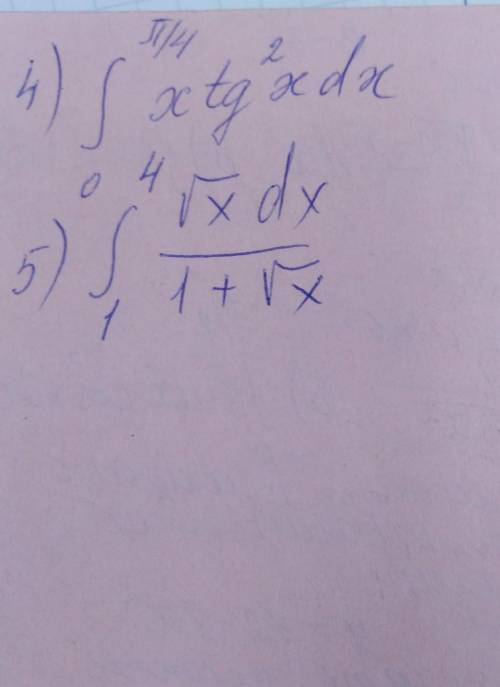 4) ∫₀^{π/4} x tg²x dx
5) ∫₁⁴ √x dx / (1 + √x)